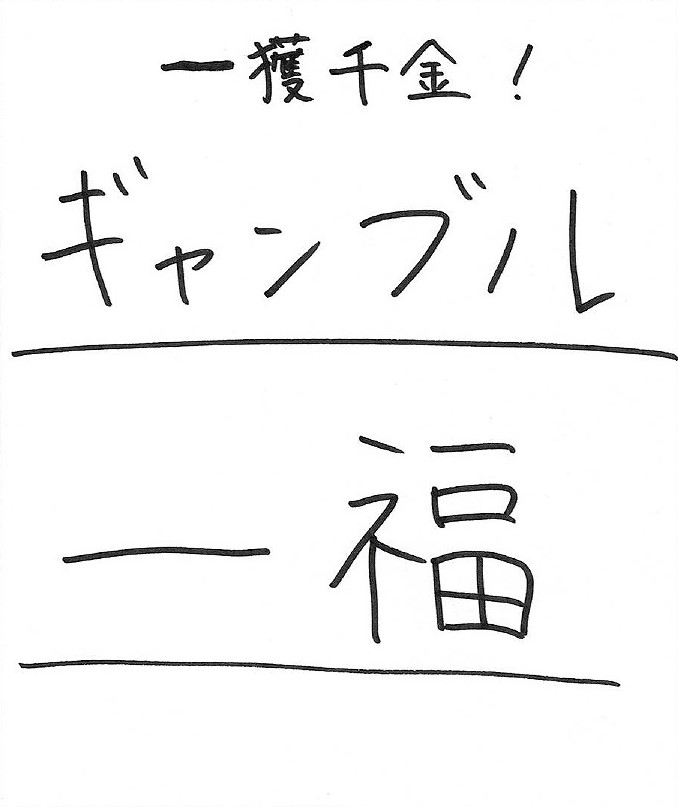 一獲千金！
ギャンブル
一福